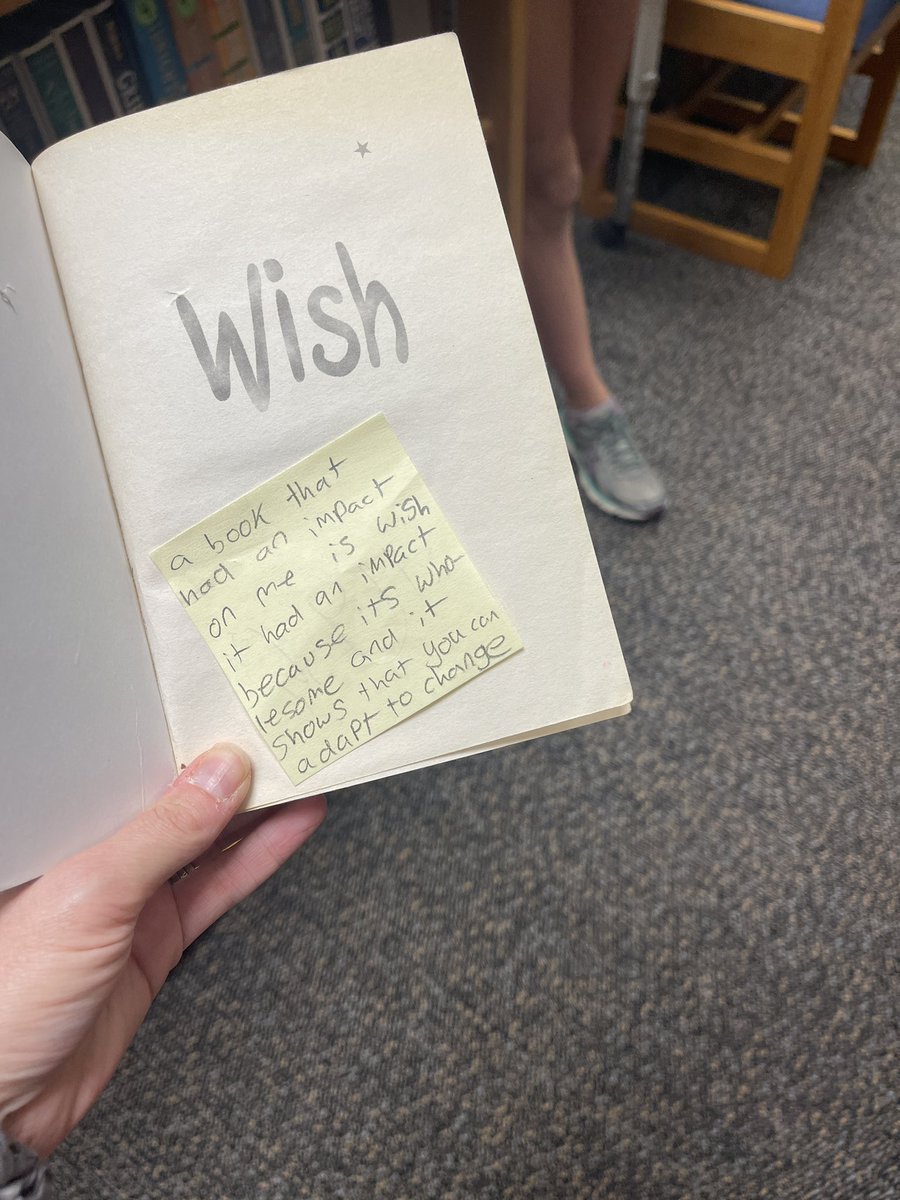 Wish
a book that
had an impact
on me is wish
it had an impact
because its who-
lesome and it
shows that you can
adapt to change